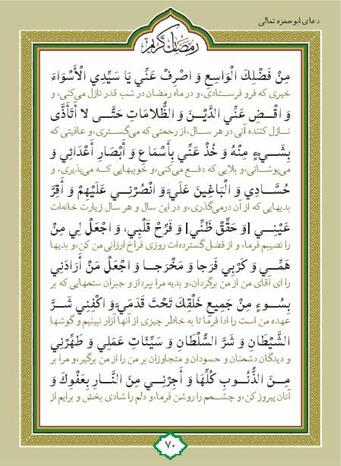 دعای ابوحمزه ثمالی
رمضان کریم
مِنْ فَضْلِكَ الْوَاسِعِ وَ اصْرِفْ عَنِّي يَا سَيِّدِي الْأَسْوَاءَ
خیری که فرو فرستادی، و در ماه رمضان در شب قدر نازل می‌کنی، و
وَ اقْضِ عَنِّي الدَّيْنَ وَ الظُّلَامَاتِ حَتَّى لَا أَتَأَذَّى
نازل کننده آنی در هر سال، از رحمتی که می‌گستری، و عافیتی که
بِشَيْءٍ مِنْهُ وَ خُذْ عَنِّي بِأَسْمَاعِ وَ أَبْصَارِ أَعْدَائِي وَ
می‌پوشانی، و بلایی که دفع می‌کنی، و خوبیهایی که می‌پذیری، و
حُسَّادِي وَ الْبَاغِينَ عَلَيَّ وَ انْصُرْنِي عَلَيْهِمْ وَ أَقِرَّ
بدیهایی که از آن درمی‌گذری، و در این سال و هر سال زیارت خانه‌ات
عَيْنِي [وَ حَقِّقْ ظَنِّي] وَ فَرِّحْ قَلْبِي، وَ اجْعَلْ لِي مِنْ
را نصیبم فرما، و از فضل گسترده‌ات روزی فراخ ارزانی من کن، و بدیها
هَمِّي وَ كَرْبِي فَرَجا وَ مَخْرَجا وَ اجْعَلْ مَنْ أَرَادَنِي
را ای آقای من از من برگردان، و بدیه مرا بپرداز، و جبران ستمهایی که بر
بِسُوءٍ مِنْ جَمِيعِ خَلْقِكَ تَحْتَ قَدَمَيَّ وَ اكْفِنِي شَرَّ
عهده من است را ادا فرما تا به خاطر چیزی از آنها آزار نبینم و گوشها
الشَّيْطَانِ وَ شَرَّ السُّلْطَانِ وَ سَيِّئَاتِ عَمَلِي وَ طَهِّرْنِي
و دیدگان دشمنان و حسودان و متجاوزان بر من را از من برگیر، و مرا بر
مِنَ الذُّنُوبِ كُلِّهَا وَ أَجِرْنِي مِنَ النَّارِ بِعَفْوِكَ وَ
آنان پیروز کن، و چشمم را روشن فرما، و دلم را شادی بخش و برایم از
۷۰